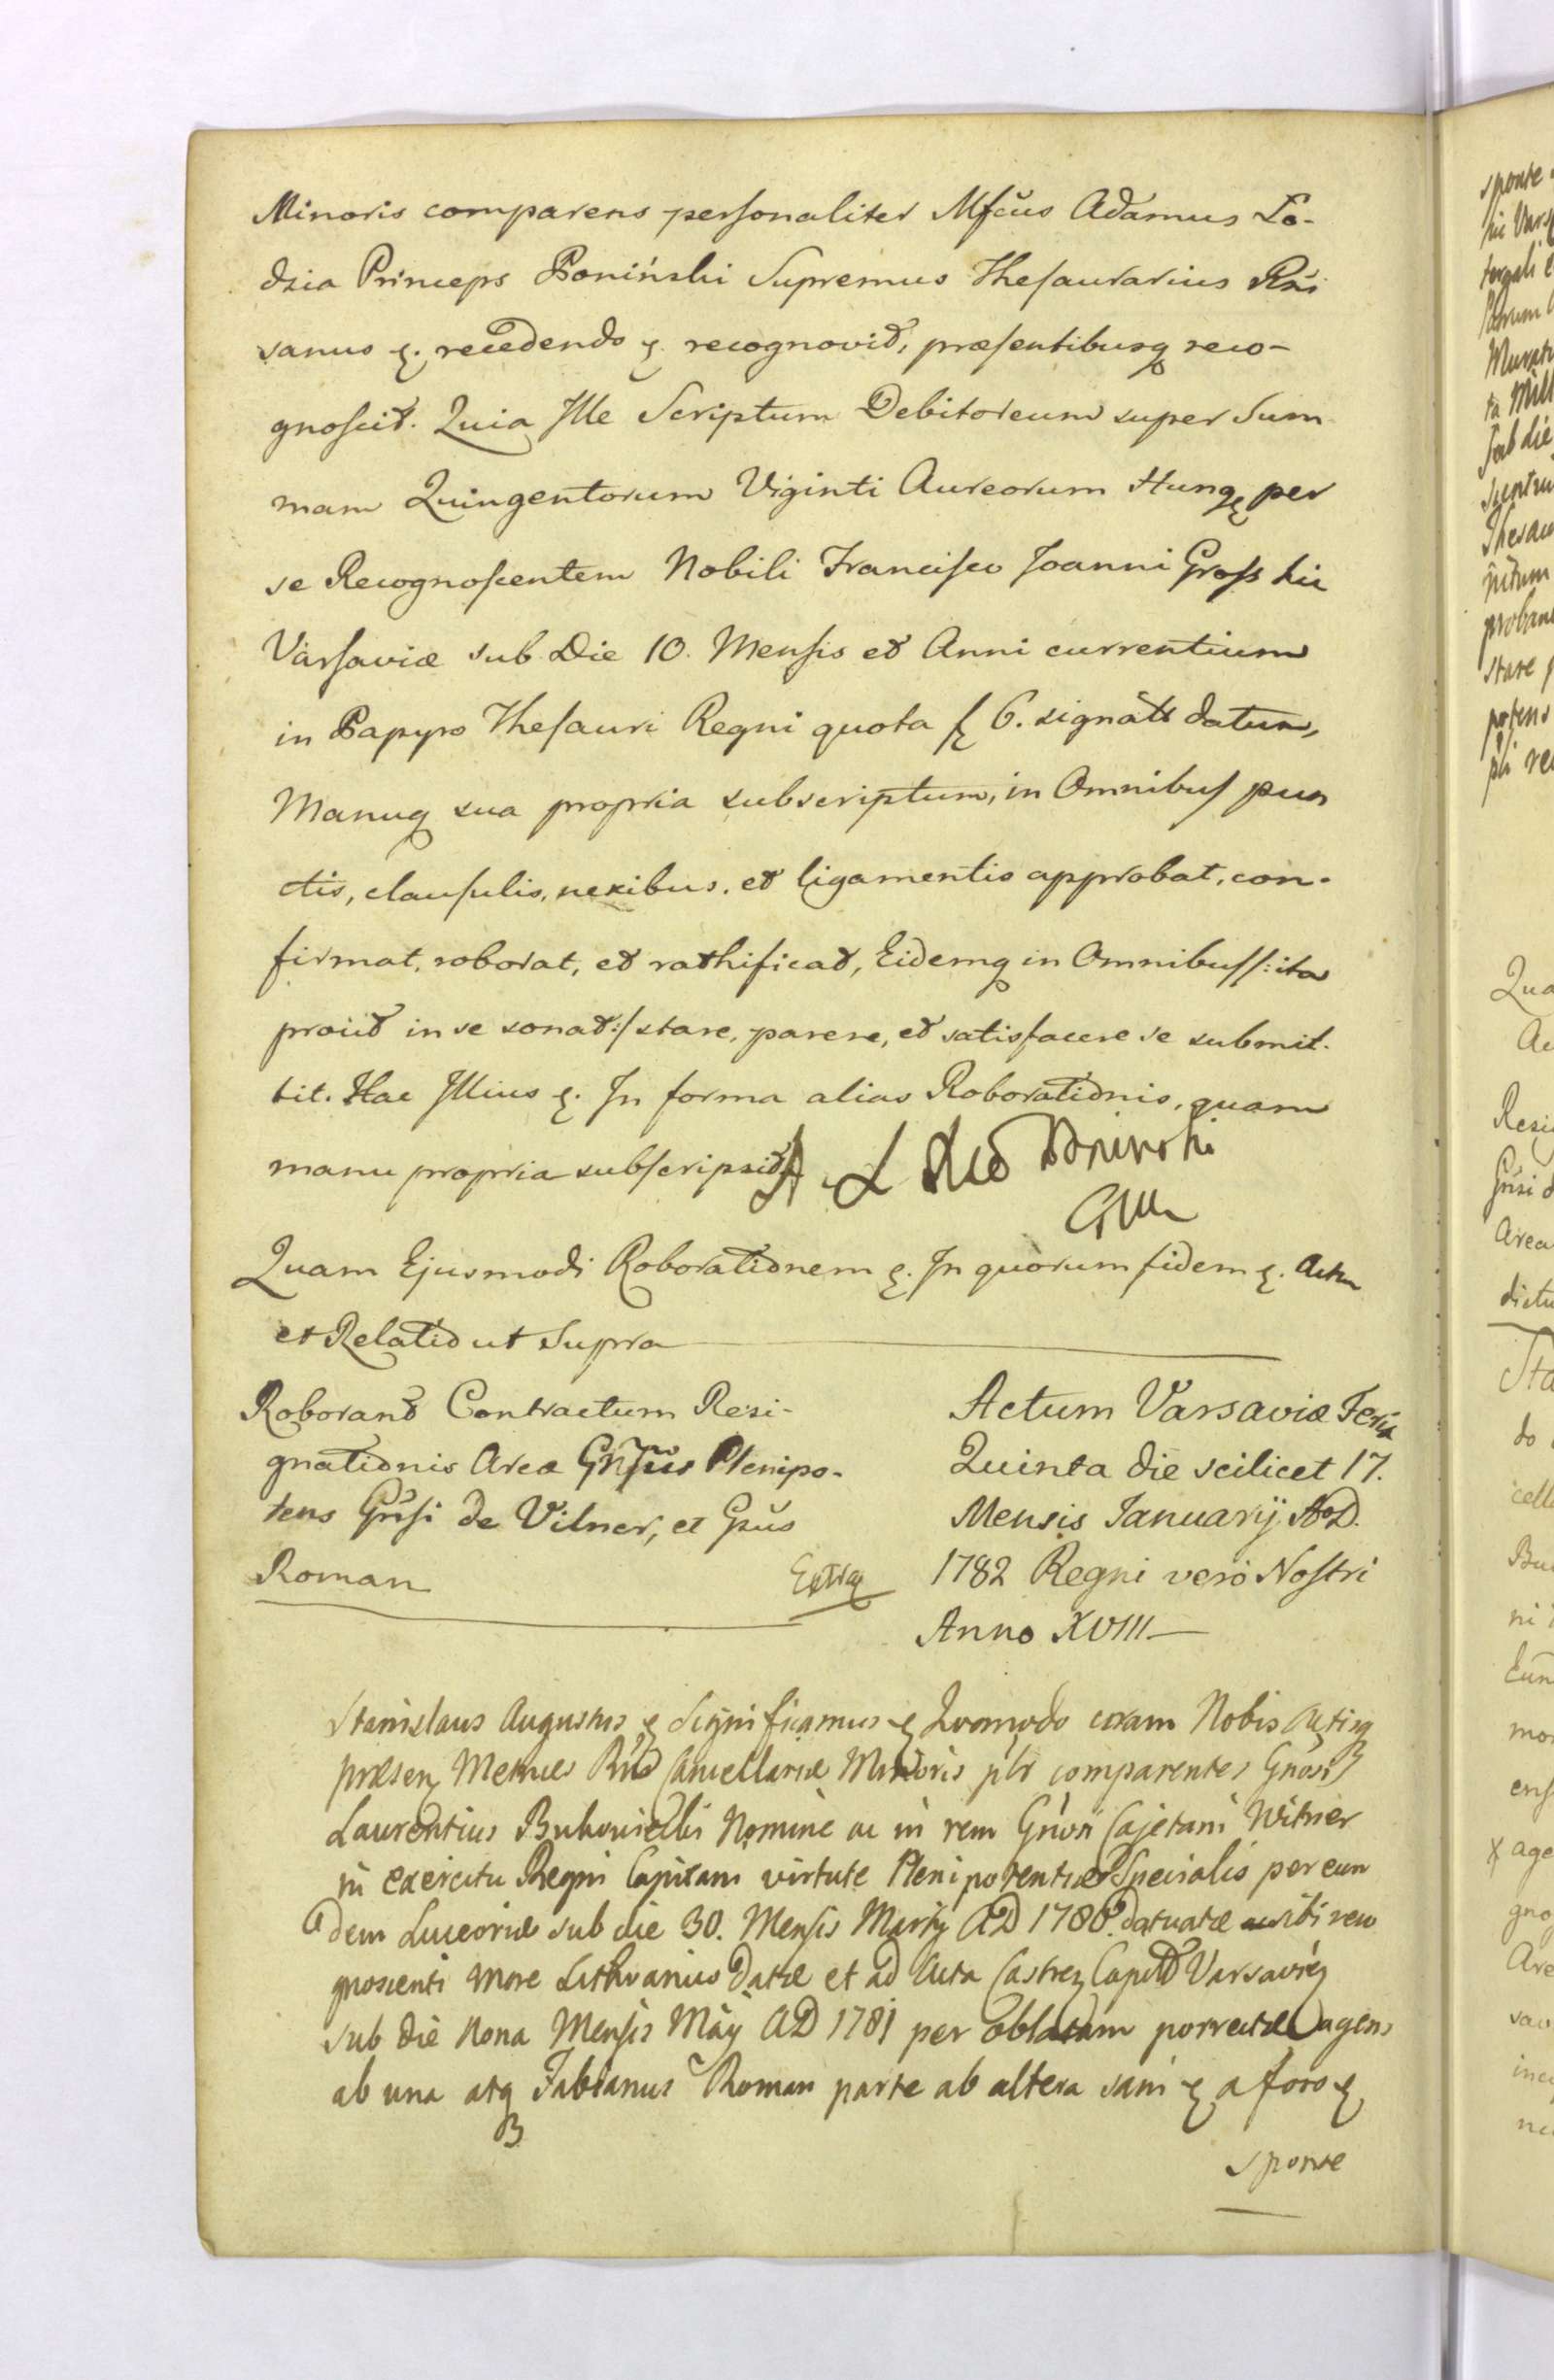 Minoris comparens personaliter Mfcus Adamus Lo-
dzia Princeps Poniński Supremus Thesaurarius Rni
sanus &. recedendo &. recognovit, præsentibusq reco-
gnoscit. Quia Ille Scriptum Debitoreum super Sum
mam Quingentorum Viginti Aureorum Hung. per
se Recognoscentem Nobili Francisco Joanni Gross hic
Varsaviæ sub Die 10. Mensis et Anni currentium
in Papyro Thesauri Regni quota 6. signato datum,
Manuq sua propria subscriptum, in Omnibus pun
ctis, clausulis, nexibus, et ligamentis approbat, con-
firmat, roborat, et rathificat, Eidemq in Omnibus /: ita
proüt in se sonat :/ stare, parere, et satisfacere se submit-
tit. Hac Illius &. In forma alias Roborationis, quam
manu propria subscripsit. A L Poninski
Quam Ejusmodi Roborationem &. In quorum fidem &. Actu
et Relatio ut Supra
Roborand Contractum Resi-
gnationis Areæ Plenipo-
tens Gnsi de Vilner, et Gnus
Roman
Extra
Actum Varsaviæ Feria
Quinta die scilicet 17.
Mensis Januarij AoD.
1782 Regni verö Nostri
Anno XVIII
Stanislaus Augustus & Significamus & Quomodo coram Nobis Actisq
præsen Metrices Rni Cancellariæ Minoris plr comparentes Gnosi
Laurentius Bukowiecki Nomine ac in rem Gnosi Cajetani Witner
in exercitu Regni Capitani virtute Plenipotentiæ Specialis per eun
dem Luceoriæ sub die 30. Mensis Martij AD 1780. datuatæ sibi reco
gnoscenti more Lithvanico Datæ et ad Acta Castren Capitl Varsavien
sub die Nona Mensis Maÿ AD 1781 per oblatam porrectæ agens
ab una atq Fabianus Roman parte ab altera sani & a foro &
sponte